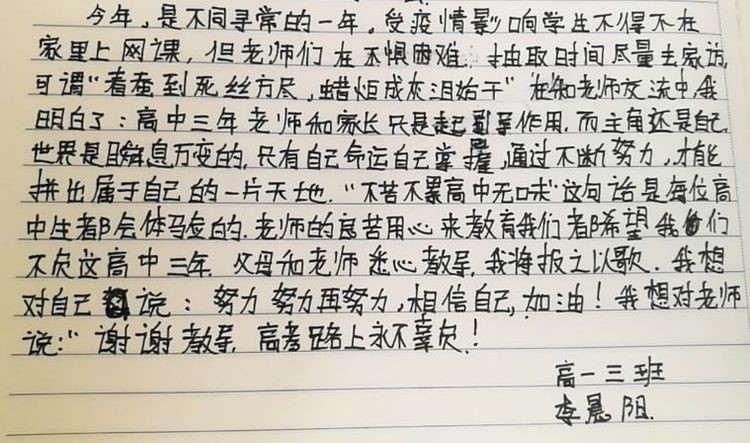 今年，是不同寻常的一年，受疫情影响学生不得不在
家里上网课，但老师们在不惧困难，抽取时间尽量去家访，
可谓"春蚕到死丝方尽，蜡炬成灰泪始干"在和老师交流中，我
明白了：高中三年老师和家长只是起到引导作用，而主角还是自己，
世界是瞬息万变的，只有自己命运自己掌握，通过不断努力，才能
拼出属于自己的一片天地。"不苦不累高中无味"这句话是每位高
中生都会体会的，老师的良苦用心来教育我们都希望我们
不负这高中三年，父母和老师悉心教导，我将报之以歌。我想
对自己说：努力努力再努力，相信自己，加油！我想对老师
说："谢谢教导，高考路上永不辜负！
高一三班
李晨阳